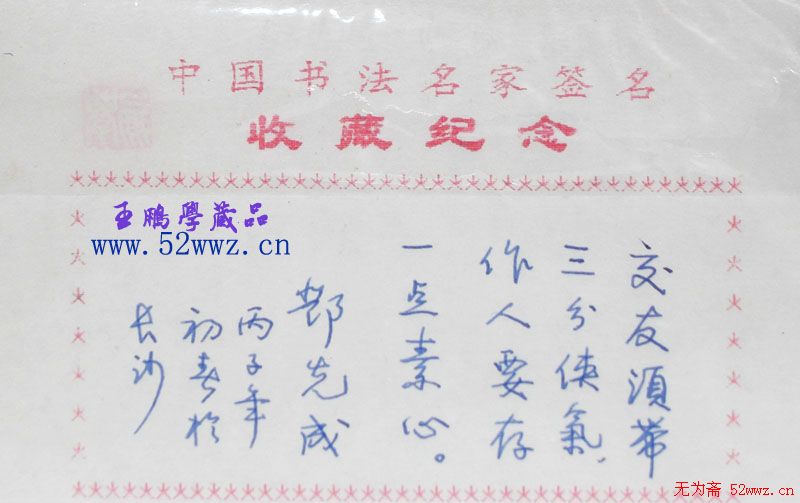 中国书法名家签名
收藏纪念
王鹏學藏品
www.52wwz.cn
交友須带
三分侠氣，
作人要存
一点素心。
鄧先成
丙子年
初春於
长沙
无为斋 52wwz.cn